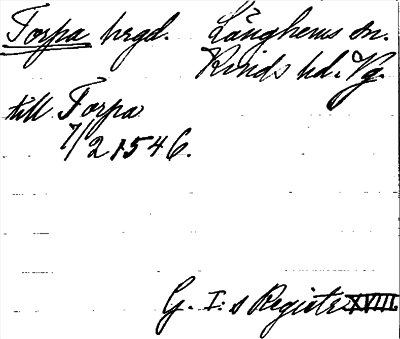 Torpa hrgd. Länghems sn.
Kinds hd. Vg.
till Torpa
7/2 1546.
G. I:s Registr. XVIII.